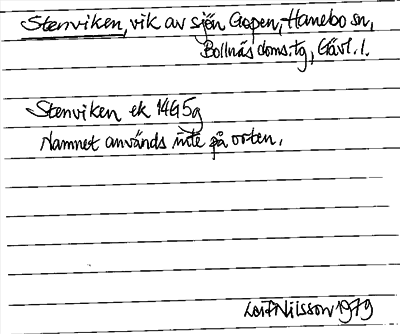 Stenviken, vik av sjön Gopen, Hanebo sn,
Bollnäs doms.tg, Gävl. l.
Stenviken ek 14G5g
Namnet används inte på orten.
Leif Nilsson 1979